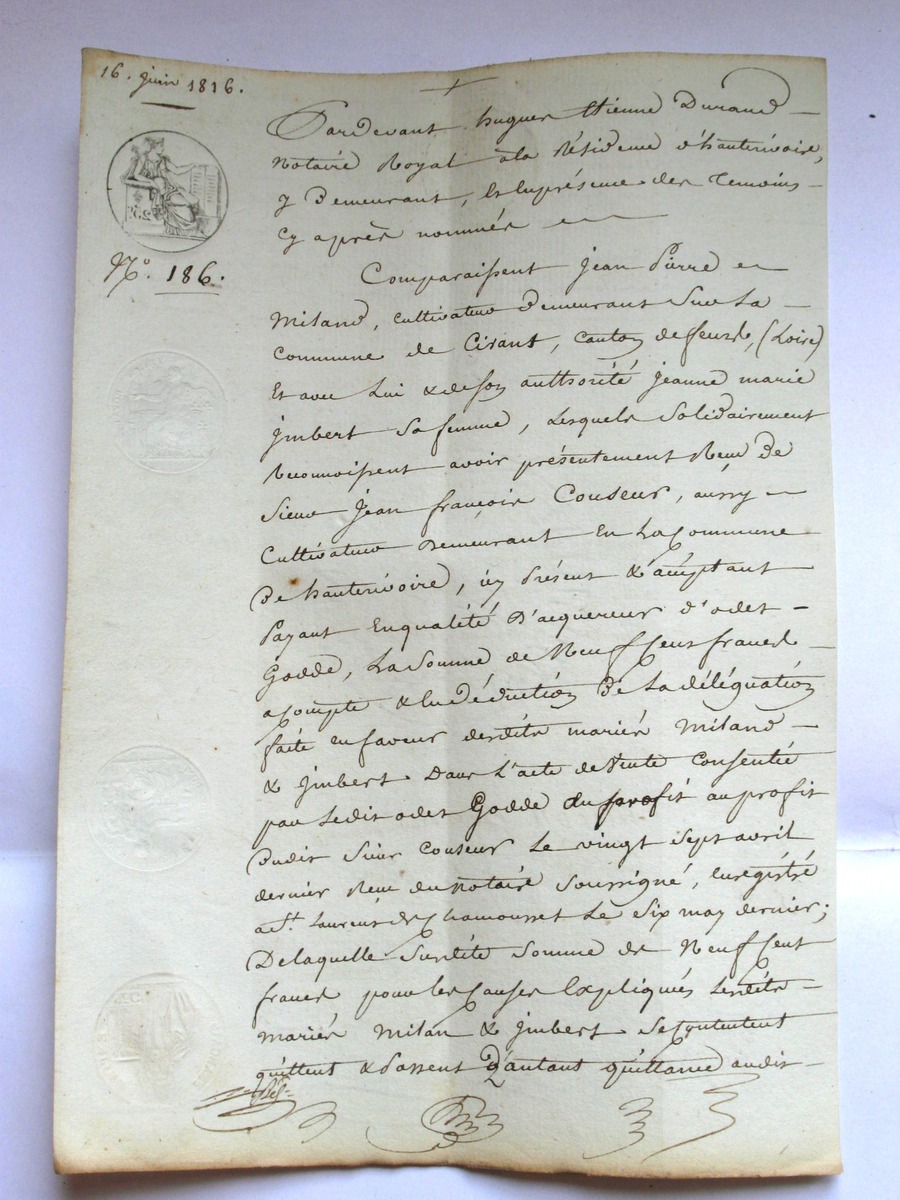 16. juin 1816.
N.° 186.
Pardevant hugues Etienne Durand
Notaire Royal à la Résidence d'hauterivoire,
y Demeurant, Et En présence des Temoins
Cy après nommés
Comparaissent Jean Pierre
Miland, Cultivateur Demeurant Sur La
Commune de Civant, Canton de feurs, (Loire)
Et avec Lui & de son authorité Jeanne marie
jmbert Sa femme, Lesquels Solidairement
Reconnoissent avoir présentement Reçu de
Sieur Jean françois Couseur, aussy
Cultivateur Demeurant En La Commune
De hauterivoire, icy Présent & acceptant
Payant En qualité D'acquereur d'odet
Godde, La Somme de Neuf Cent francs
a Compte & En Déduction De La délégation
faite en faveur desdits mariés Miland
& jmbert Dans L'acte de Vente Consentie
par Ledit odet Godde du profit au profit
Dudit Sieur Couseur Le vingt Sept avril
dernier Reçu du Notaire Soussigné, Enregistré
a St. Laurent de Chamousset Le Six may dernier;
De laquelle Susdite Somme de Neuf Cent
francs pour les Causes Expliqués Lesdits
mariés Milan & jmbert Se Contentent
quittent & Passent D'autant quittance audit